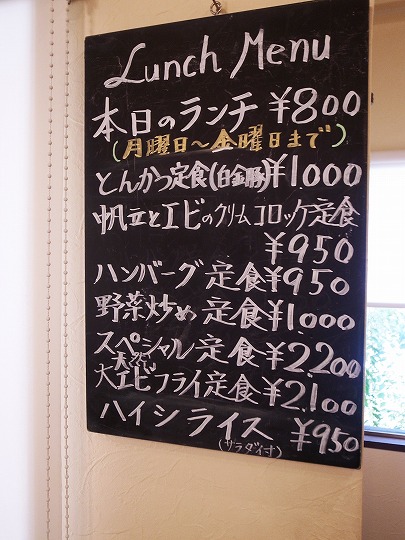 Lunch Menu
本日のランチ ¥800
(月曜日〜金曜日まで)
とんかつ定食(白金豚)¥1.000
帆立とエビのクリームコロッケ定食
¥950
ハンバーグ定食¥950
野菜炒め定食¥1.000
スペシャル定食¥2.200
天然
大エビフライ定食¥2.100
ハイシライス ¥950
(サラダ付)